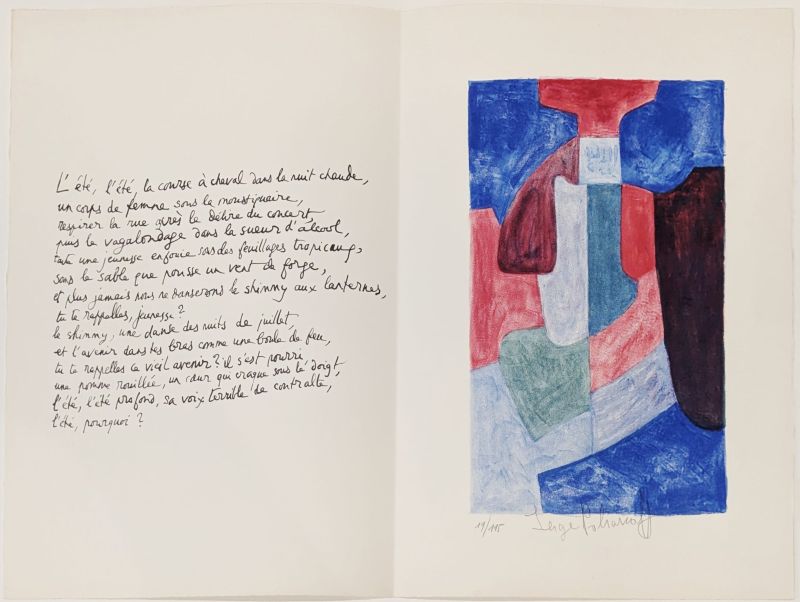 L'été, l'été, la course à cheval dans la nuit chaude,
un corps de femme sous la moustiquaire,
respirer la rue après le délire du concert,
puis le vagabondage dans la sueur d'alcool,
toute une jeunesse enfouie sous des feuillages tropicaux,
sous le sable que pousse un vent de forge,
et plus jamais nous ne danserons le shimmy aux lanternes,
tu te rappelles, jeunesse?
le shimmy, une danse des nuits de juillet,
et l'avenir dans tes bras comme une boule de feu,
tu te rappelles ce vieil avenir? il s'est pourri
une pomme rouillée, un cœur qui craque sous le doigt,
l'été, l'été profond, sa voix terrible de contralto,
l'été, pourquoi?
19/115
Serge Poliakoff